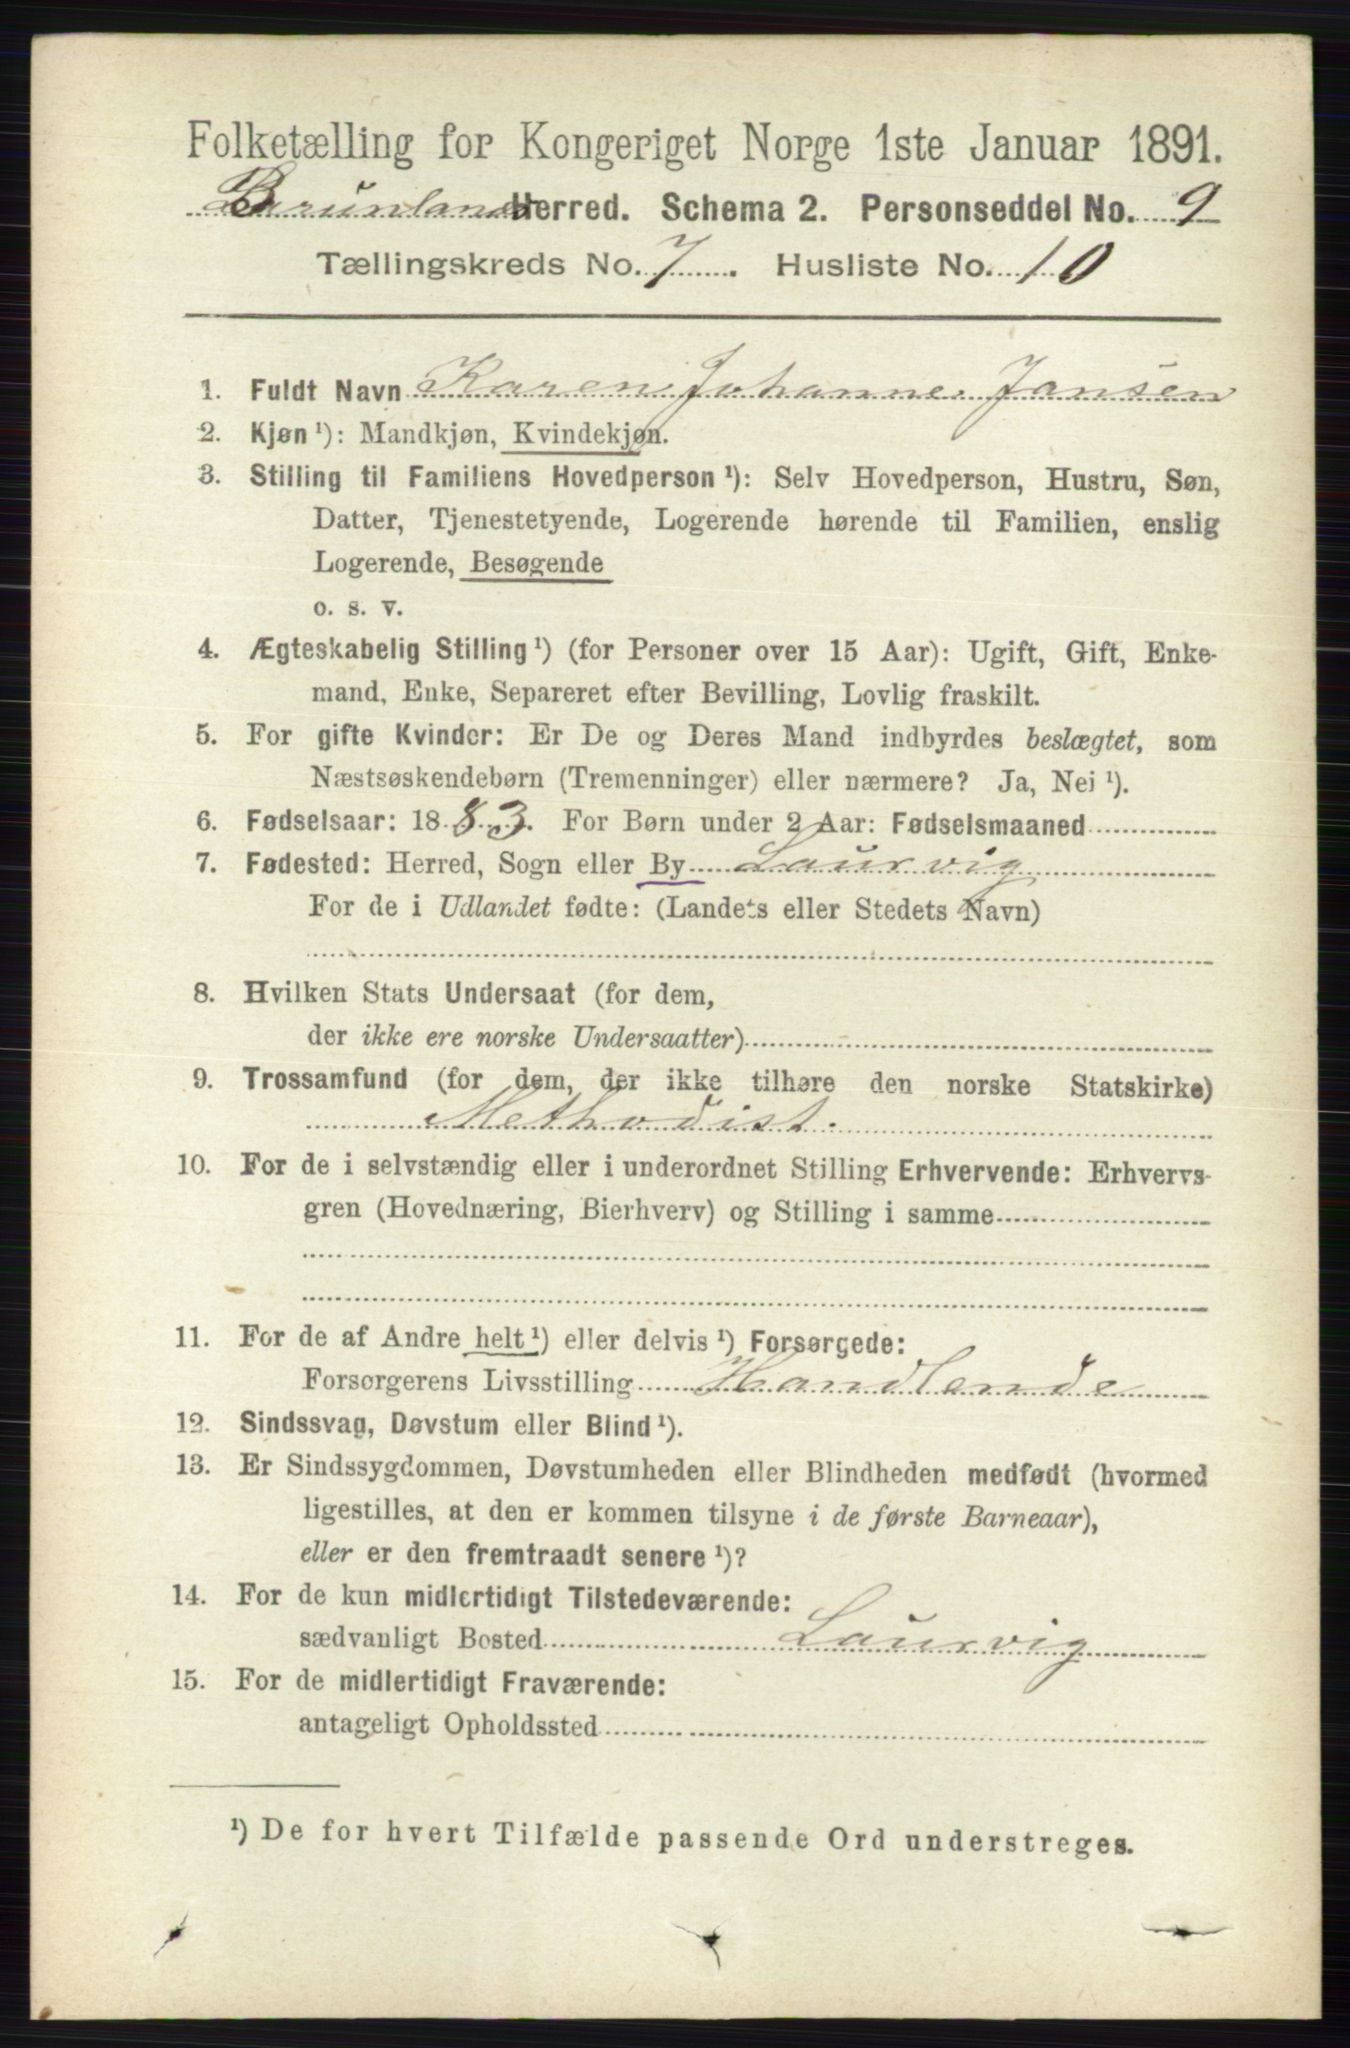 Folketælling for Kongeriget Norge 1ste Januar 1891.
Brunlanes Herred. Schema 2. Personseddel No. 9
Tællingskreds No. 7. Husliste No. 10
1. Fuldt Navn Karen Johanne Jansen
2. Kjøn ¹): Mandkjøn, Kvindekjøn.
3. Stilling til Familiens Hovedperson ¹): Selv Hovedperson, Hustru, Søn,
Datter, Tjenestetyende, Logerende hørende til Familien, enslig
Logerende, Besøgende
o. s. v.
4. Ægteskabelig Stilling ¹) (for Personer over 15 Aar): Ugift, Gift, Enke-
mand, Enke, Separeret efter Bevilling, Lovlig fraskilt.
5. For gifte Kvinder: Er De og Deres Mand indbyrdes beslægtet, som
Næstsøskendebørn (Tremenninger) eller nærmere? Ja, Nei ¹).
6. Fødselsaar: 1883. For Børn under 2 Aar: Fødselsmaaned
7. Fødested: Herred, Sogn eller By Laurvig
For de i Udlandet fødte: (Landets eller Stedets Navn)
8. Hvilken Stats Undersaat (for dem,
der ikke ere norske Undersaatter)
9. Trossamfund (for dem, der ikke tilhøre den norske Statskirke)
Methodist.
10. For de i selvstændig eller i underordnet Stilling Erhvervende: Erhvervs-
gren (Hovednæring, Bierhverv) og Stilling i samme
11. For de af Andre helt ¹) eller delvis ¹) Forsørgede:
Forsørgerens Livsstilling Handlende
12. Sindssvag, Døvstum eller Blind ¹).
13. Er Sindssygdommen, Døvstumheden eller Blindheden medfødt (hvormed
ligestilles, at den er kommen tilsyne i de første Barneaar),
eller er den fremtraadt senere ¹)?
14. For de kun midlertidigt Tilstedeværende:
sædvanligt Bosted Laurvig
15. For de midlertidigt Fraværende:
antageligt Opholdssted
¹) De for hvert Tilfælde passende Ord understreges.